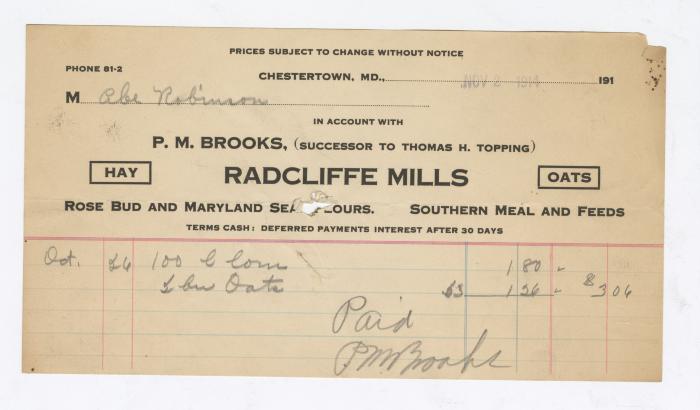 PRICES SUBJECT TO CHANGE WITHOUT NOTICE
PHONE 81-2
CHESTERTOWN, MD., NOV 2 1914 191
M Abe Robinson
IN ACCOUNT WITH
P. M. BROOKS, (SUCCESSOR TO THOMAS H. TOPPING)
HAY RADCLIFFE MILLS OATS
ROSE BUD AND MARYLAND SEA FLOURS. SOUTHERN MEAL AND FEEDS
TERMS CASH: DEFERRED PAYMENTS INTEREST AFTER 30 DAYS
Oct. 26 100 C Corn 1 80 "
2 bu Oats 63 1 26 " $3 06
Paid
P M Brooks